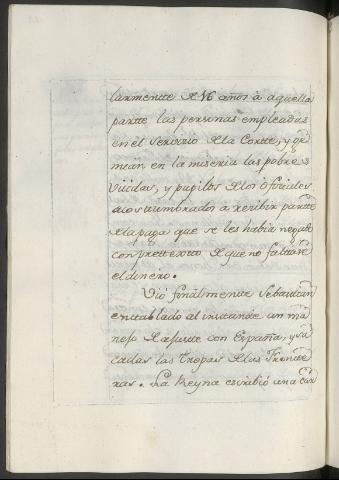 larmentte de 16 años à aquella
partte las personas empleadas
en el Servizio de la Cortte, y ge
mian en la miseria las pobres
Viudas, y pupilos de los ofiziales
acostumbrados à rezibir partte
de la paga que se les havia negado
con prettexto de que no faltase
el dinero.
Viò finalmentte Sebastian
entablado al instantte un ma
nejo de ajuste con España, y sa
cadas las tropas de las Frontte
ras. La Reyna escribiò una car